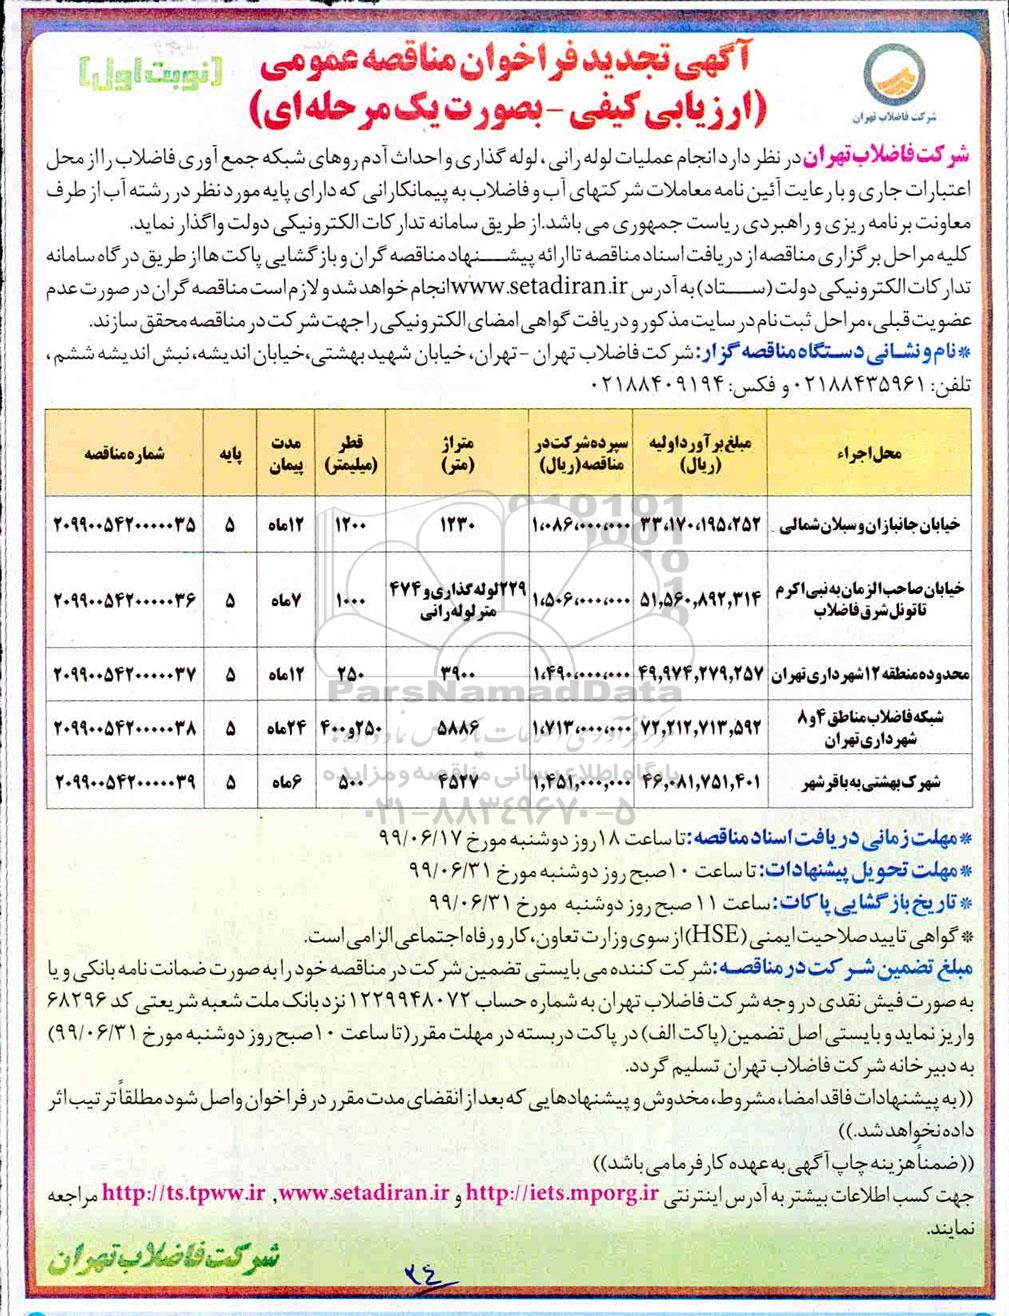 آگهی تجدید فراخوان مناقصه عمومی
(ارزیابی کیفی - بصورت یک مرحله ای)
(نوبت اول)
شرکت فاضلاب تهران
شرکت فاضلاب تهران در نظر دارد انجام عملیات لوله رانی، لوله گذاری و احداث آدم روهای شبکه جمع آوری فاضلاب را از محل
اعتبارات جاری و با رعایت آئین نامه معاملات شرکتهای آب و فاضلاب به پیمانکارانی که دارای پایه مورد نظر در رشته آب از طرف
معاونت برنامه ریزی و راهبردی ریاست جمهوری می باشد.از طریق سامانه تدارکات الکترونیکی دولت واگذار نماید.
کلیه مراحل برگزاری مناقصه از دریافت اسناد مناقصه تا ارائه پیشنهاد مناقصه گران و بازگشایی پاکت ها از طریق درگاه سامانه
تدارکات الکترونیکی دولت (ستاد) به آدرس www.setadiran.ir انجام خواهد شد و لازم است مناقصه گران در صورت عدم
عضویت قبلی، مراحل ثبت نام در سایت مذکور و دریافت گواهی امضای الکترونیکی را جهت شرکت در مناقصه محقق سازند.
*نام و نشانی دستگاه مناقصه گزار: شرکت فاضلاب تهران -تهران، خیابان شهید بهشتی،خیابان اندیشه، نبش اندیشه ششم،
تلفن: ۰۲۱۸۸۴۳۵۹۶۱ و فکس: ۰۲۱۸۸۴۰۹۱۹۴
محل اجراء | مبلغ برآورد اولیه (ریال) | سپرده شرکت در مناقصه (ریال) | متراژ (متر) | قطر (میلیمتر) | مدت پیمان | پایه | شماره مناقصه
خیابان جانبازان و سبلان شمالی | ۳۳،۱۷۰،۱۹۵،۲۵۲ | ۱،۰۸۶،۰۰۰،۰۰۰ | ۱۲۳۰ | ۱۲۰۰ | ۱۲ماه | ۵ | ۲۰۹۹۰۰۵۴۲۰۰۰۰۰۳۵
خیابان صاحب الزمان به نبی اکرم تا تونل شرق فاضلاب | ۵۱,۵۶۰,۸۹۲,۳۱۴ | ۱،۵۰۶،۰۰۰،۰۰۰ | ۲۲۹لوله گذاری و ۴۷۴ متر لوله رانی | ۱۰۰۰ | ۷ماه | ۵ | ۲۰۹۹۰۰۵۴۲۰۰۰۰۰۳۶
محدوده منطقه ۱۲شهرداری تهران | ۴۹,۹۷۴,۲۷۹,۲۵۷ | ۱،۴۹۰،۰۰۰،۰۰۰ | ۳۹۰۰ | ۲۵۰ | ۱۲ماه | ۵ | ۲۰۹۹۰۰۵۴۲۰۰۰۰۰۳۷
شبکه فاضلاب مناطق ۴ و ۸ شهرداری تهران | ۷۲,۲۱۲,۷۱۳,۵۹۲ | ۱،۷۱۳،۰۰۰،۰۰۰ | ۵۸۸۶ | ۲۵۰و۴۰۰ | ۲۴ماه | ۵ | ۲۰۹۹۰۰۵۴۲۰۰۰۰۰۳۸
شهرک بهشتی به باقرشهر | ۴۶,۰۸۱,۷۵۱,۴۰۱ | ۱,۴۵۱,۰۰۰,۰۰۰ | ۴۵۲۷ | ۵۰۰ | ۶ماه | ۵ | ۲۰۹۹۰۰۵۴۲۰۰۰۰۰۳۹
ParsNamadData
پایگاه اطلاع رسانی مناقصه و مزایده
۰۲۱-۸۸۳۴۹۶۷۰-۵
*مهلت زمانی دریافت اسناد مناقصه: تا ساعت ۱۸ روز دوشنبه مورخ ۹۹/۰۶/۱۷
*مهلت تحویل پیشنهادات: تا ساعت ۱۰صبح روز دوشنبه مورخ ۹۹/۰۶/۳۱
*تاریخ بازگشایی پاکات: ساعت ۱۱ صبح روز دوشنبه مورخ ۹۹/۰۶/۳۱
*گواهی تایید صلاحیت ایمنی (HSE) از سوی وزارت تعاون، کار و رفاه اجتماعی الزامی است.
مبلغ تضمین شرکت در مناقصه: شرکت کننده می بایستی تضمین شرکت در مناقصه خود را به صورت ضمانت نامه بانکی و یا
به صورت فیش نقدی در وجه شرکت فاضلاب تهران به شماره حساب ۱۲۲۹۹۴۸۰۷۲ نزد بانک ملت شعبه شریعتی کد ۶۸۲۹۶
واریز نماید و بایستی اصل تضمین(پاکت الف) در پاکت دربسته در مهلت مقرر (تا ساعت ۱۰صبح روز دوشنبه مورخ ۹۹/۰۶/۳۱)
به دبیرخانه شرکت فاضلاب تهران تسلیم گردد.
((به پیشنهادات فاقد امضا، مشروط، مخدوش و پیشنهادهایی که بعد از انقضای مدت مقرر در فراخوان واصل شود مطلقاً ترتیب اثر
داده نخواهد شد.))
((ضمناً هزینه چاپ آگهی به عهده کارفرما می باشد))
جهت کسب اطلاعات بیشتر به آدرس اینترنتی http://iets.mporg.ir و http://ts.tpww.ir ,www.setadiran.ir مراجعه
نمایند.
شرکت فاضلاب تهران
۳۴